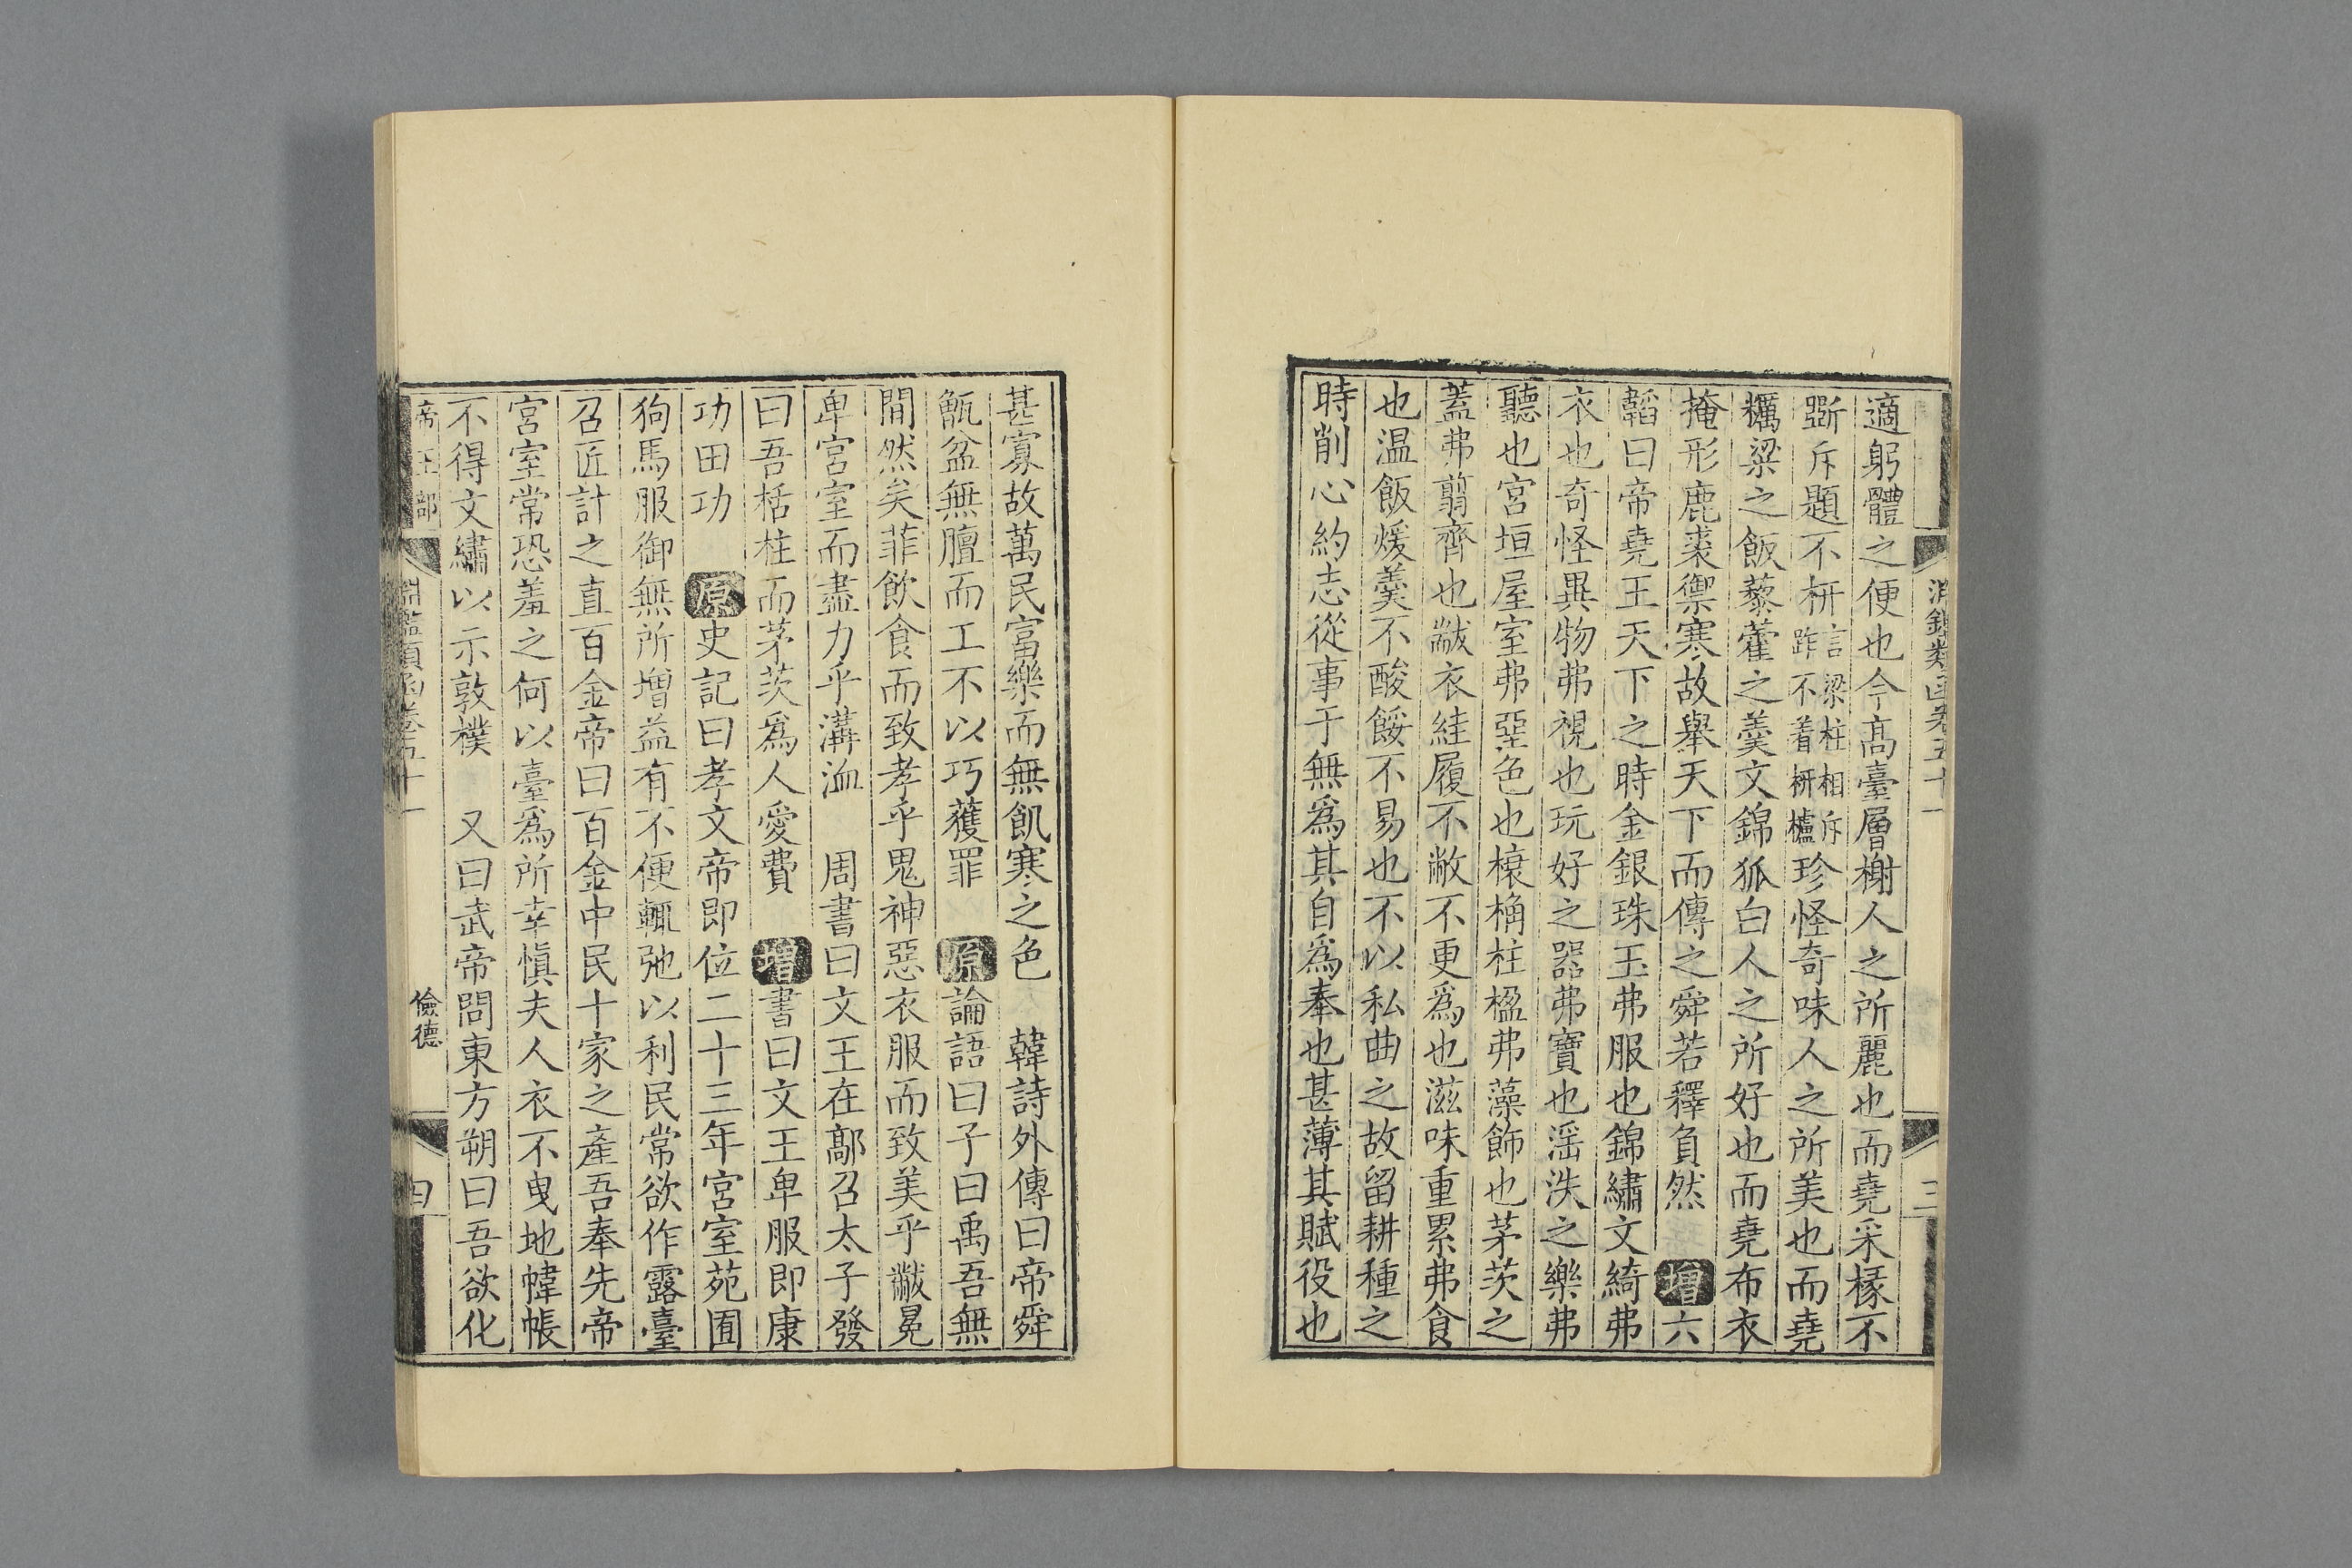 淵鑑類函卷五十一 三
適躬體之便也今高臺層榭人之所麗也而堯采椽不
斲斥題不枅言梁柱相斥距不着枅櫨珍怪奇味人之所美也而堯
糲粱之飯藜藿之羹文錦狐白人之所好也而堯布衣
掩形鹿裘禦寒故舉天下而傳之舜若釋負然 增六
韜曰帝堯王天下之時金銀珠玉弗服也錦繡文綺弗
衣也奇怪異物弗視也玩好之器弗寶也滛泆之樂弗
聽也宮垣屋室弗堊色也榱桷柱楹弗藻飾也茅茨之
蓋弗翦齊也黻衣絓履不敝不更爲也滋味重累弗食
也温飯煖羹不酸餒不易也不以私曲之故留耕種之
時削心約志從事于無爲其自爲奉也甚薄其賦役也
甚寡故萬民富樂而無飢寒之色 韓詩外傳曰帝舜
甑盆無膻而工不以巧獲罪 原論語曰子曰禹吾無
間然矣菲飲食而致孝乎鬼神惡衣服而致美乎黻冕
卑宮室而盡力乎溝洫 周書曰文王在鄗召太子發
曰吾栝柱而茅茨爲人愛費 增書曰文王卑服即康
功田功 原史記曰孝文帝即位二十三年宮室苑囿
狗馬服御無所增益有不便輒弛以利民常欲作露臺
召匠計之直百金帝曰百金中民十家之產吾奉先帝
宮室常恐羞之何以臺爲所幸慎夫人衣不曳地幃帳
不得文繡以示敦樸 又曰武帝問東方朔曰吾欲化
帝王部 淵鑑類函卷五十一 儉德 四